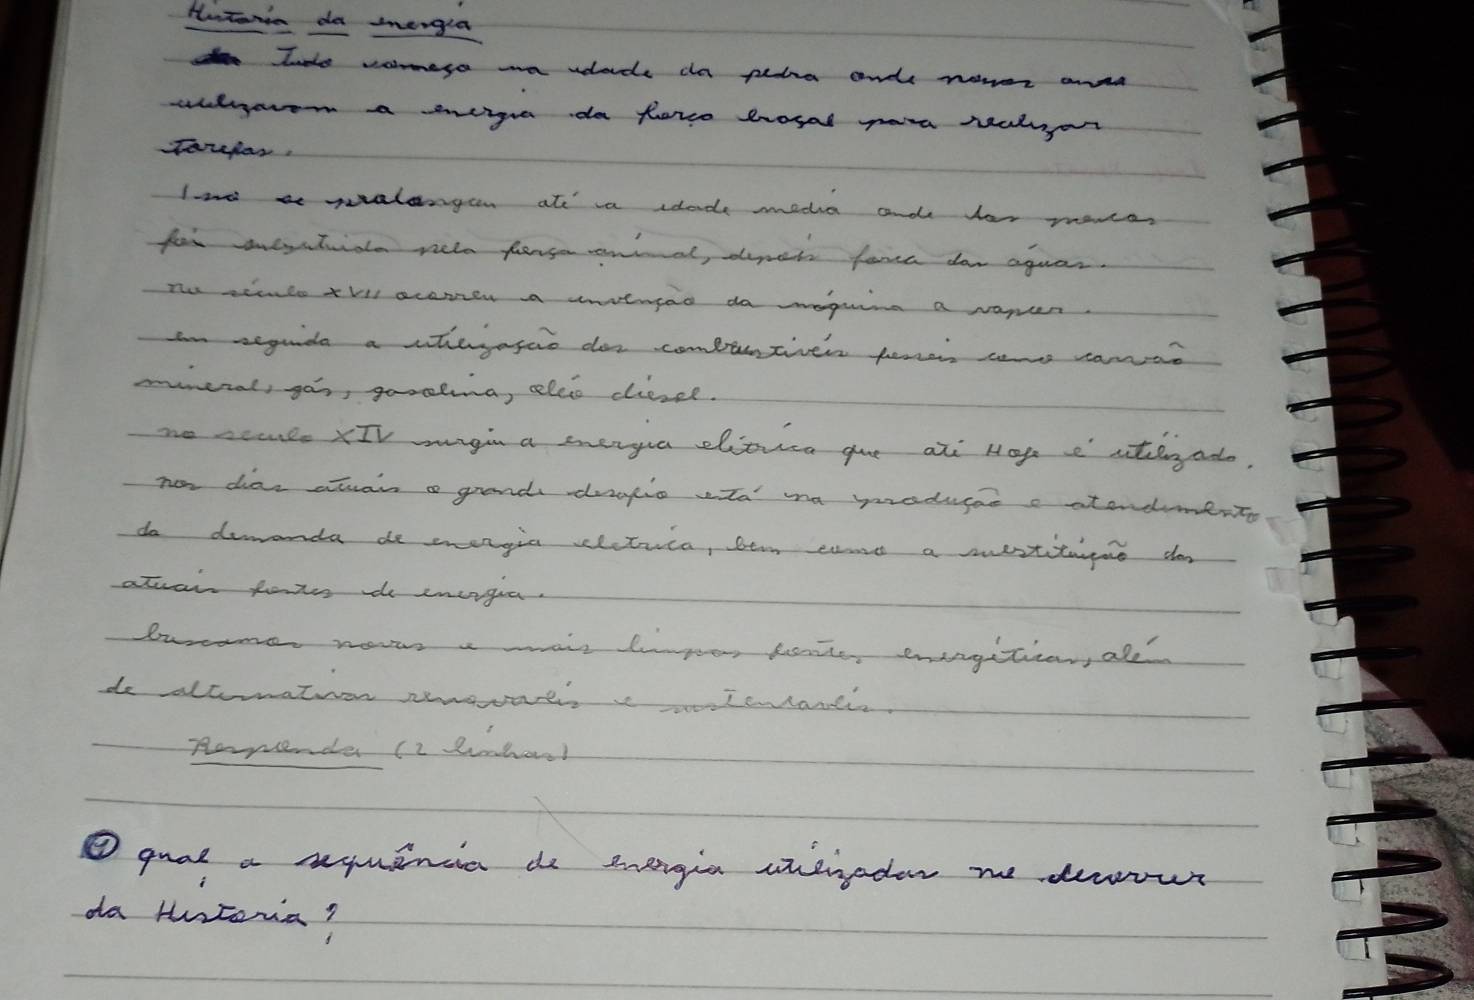 Historia da energia
Tudo começo na idade da pedra onde nossos
utilizavam a energia da força braçal para realizar
tarefas.
Isso se prolongou até a idade media onde
foi substituida pela força animal, depois força das águas.
no século XVII ocorreu a invenção da máquina a vapor.
em seguida a utilização dos combustivéis fosseis como carvaõ
mineral, gás, gasolina, oléo diesel.
no seculo XIV surgiu a energia elétrica que até Hoje é utilizado.
nos dias atuais o grande desafio está na produção e atendimento
da demanda de energia eletrica, bem como a substituição das
atuais fontes de energia.
buscamos novas e mais limpas fontes energéticas, além
de alternativas renovavéis e sustentavéis.
Responda (2 linhas)
① qual a sequência de energia utilizadas no decorrer
da Historia?